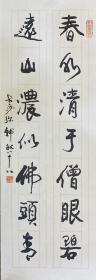 春水清于僧眼碧
遠山濃似佛頭青